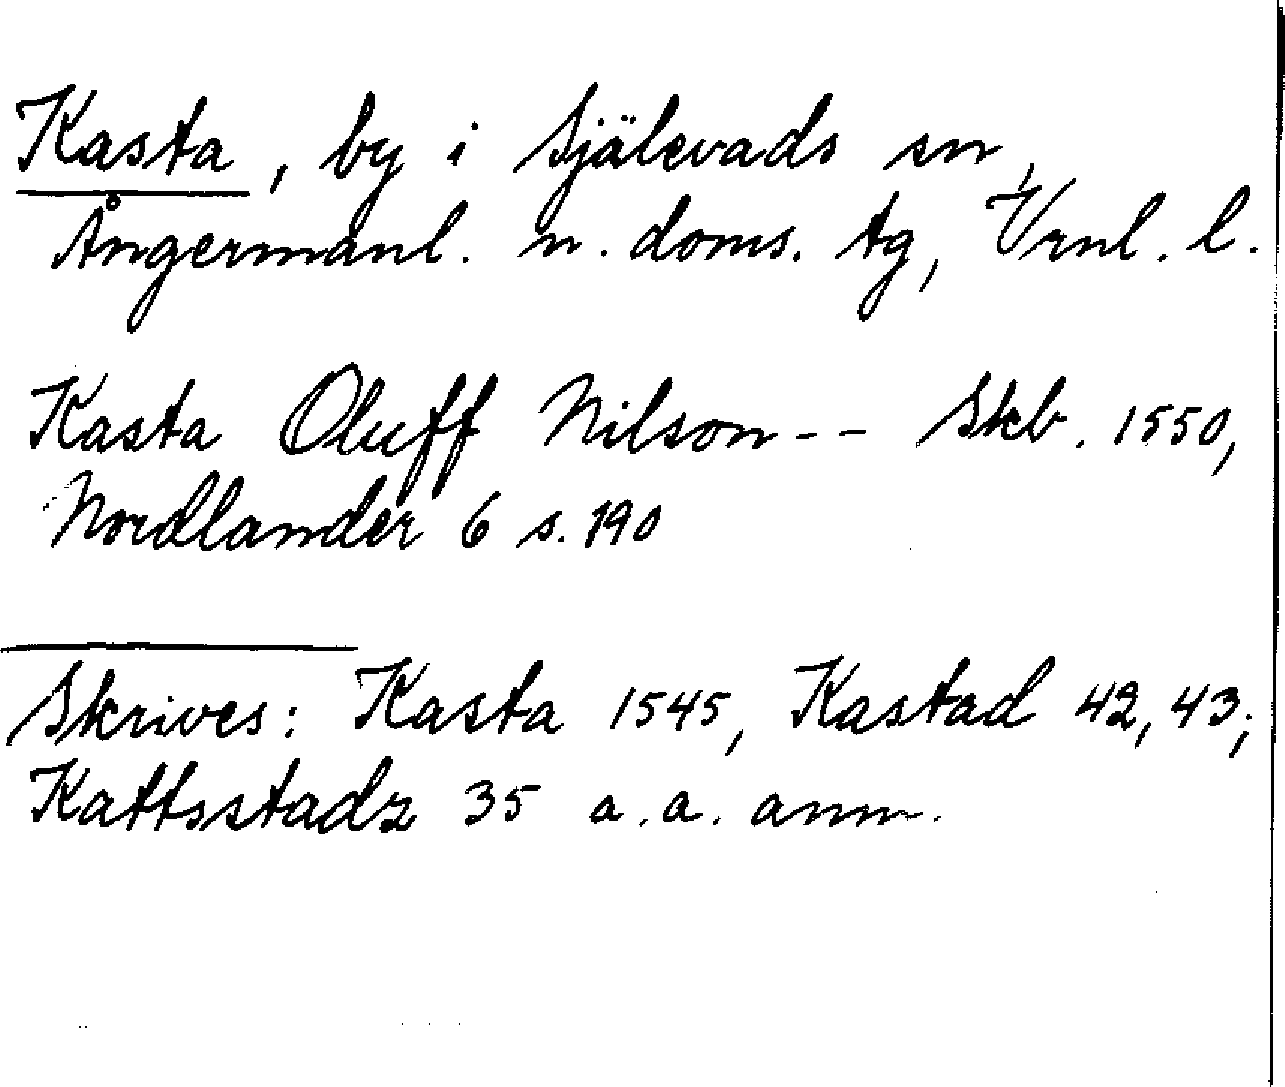 Kasta, by i Själevads sn,
Ångermanl. n. doms. tg, Vrnl. l.
Kasta Oluff Nilson -- Skb. 1550,
Nordlander 6 s. 190
Skrives: Kasta 1545, Kastad 42, 43;
Kattsstadz 35 a. a. anm.